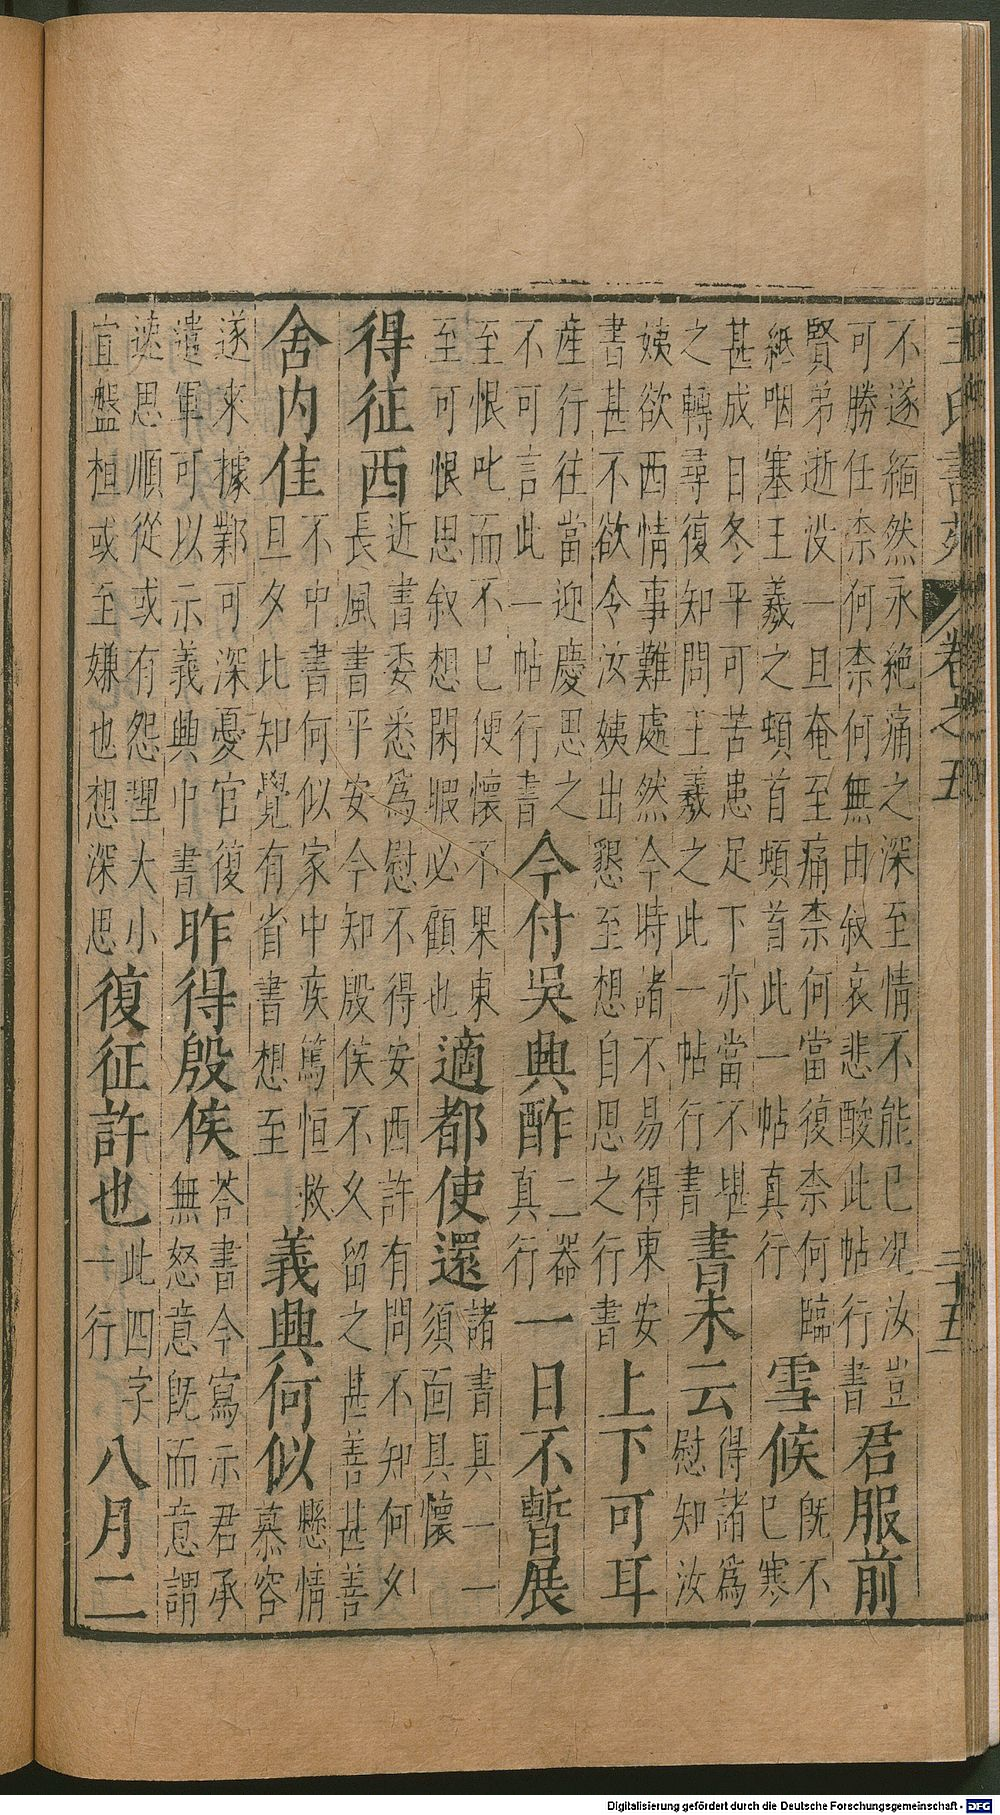 王氏書苑 卷之五 二十五
不遂緬然永絕痛之深至情不能已况汝豈
可勝任柰何柰何無由叙哀悲酸此帖行書
君服前
賢弟逝没一旦奄至痛柰何當復柰何臨
紙咽塞王羲之頓首頓首此一帖真行
雪候
既不
已寒
甚成日冬平可苦患足下亦當不堪
之轉尋復知問王羲之此一帖行書
書末云
得諸爲
慰知汝
姨欲西情事難處然今時諸不易得東安
書甚不欲令汝姨出懇至想自思之行書
上下可耳
產行往當迎慶思之
不可言此一帖行書
今付吳興酢
二器
真行
一日不暫展
至恨叱而不已便懷不果東
至可恨思叙想閑暇必顧也
適都使還
諸書具一一
須面具懷
得征西
近書委悉爲慰不得安西許有問不知何久
長風書平安今知殷侯不久留之甚善甚善
舍内佳
不中書何似家中疾篤恒救
旦夕此知覺有省書想至
義興何似
懸情
慕容
遂來據鄴可深憂官復
遣軍可以示義興中書
昨得殷侯
荅書今寫示君承
無怒意既而意謂
速思順從或有怨理大小
宜盤桓或至嫌也想深思
復征許也
此四字
一行
八月二
Digitalisierung gefördert durch die Deutsche Forschungsgemeinschaft - DFG